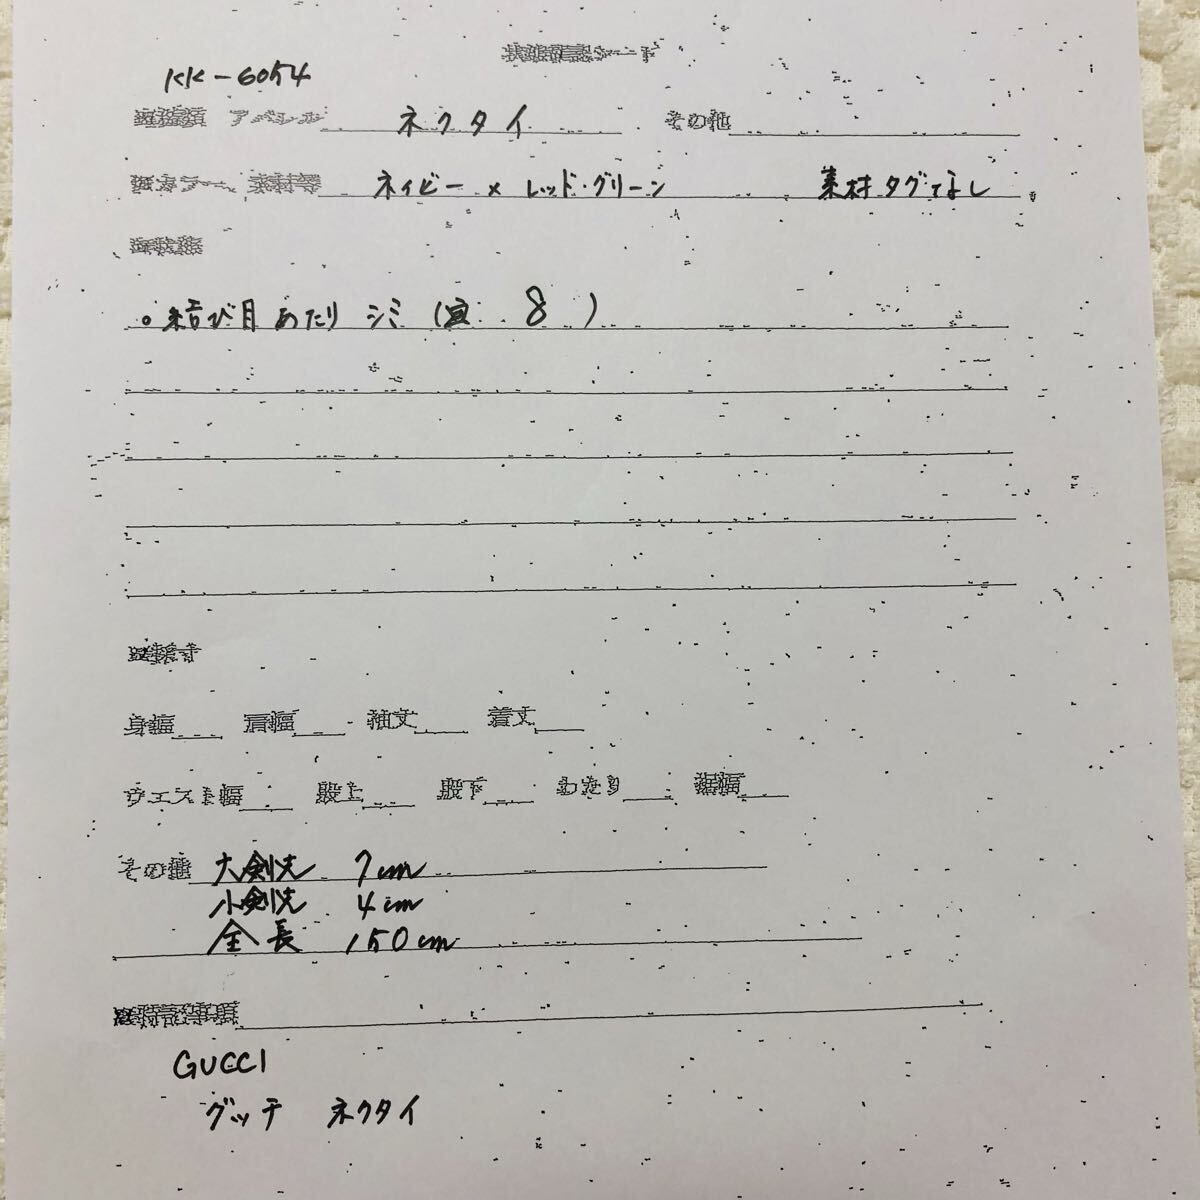 状態確認シート
KK-6054
アパレル ネクタイ その他
カラー、素材等 ネイビー × レッド・グリーン 素材タグなし
状態
。結び目あたり シミ (写 8 )
身幅 肩幅 袖丈 着丈
ウエスト幅 股上 股下 わたり 裾幅
その他 大剣先 7cm
小剣先 4cm
全長 150cm
特記事項
GUCCI
グッチ ネクタイ